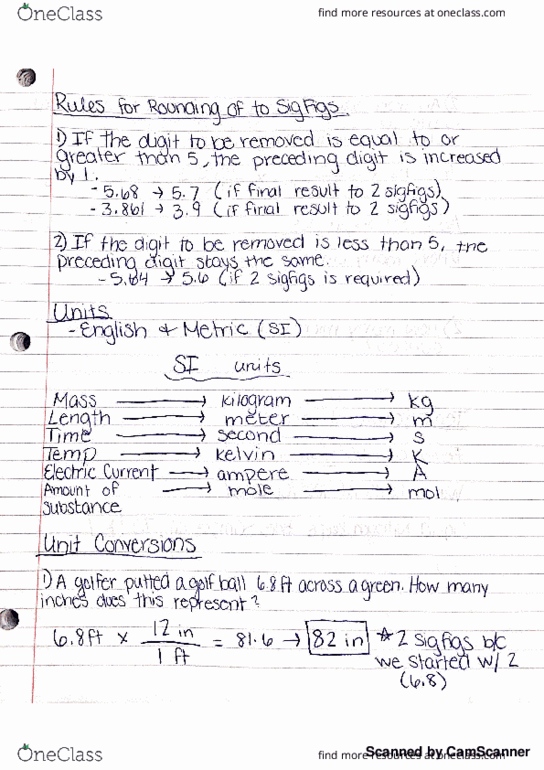 OneClass
find more resources at oneclass.com
Rules for Rounding of to Sigfigs.
1) If the digit to be removed is equal to or
greater than 5, the preceding digit is increased
by 1.
- 5.68 → 5.7 (if final result to 2 sigfigs)
- 3.861 → 3.9 (if final result to 2 sigfigs)
2) If the digit to be removed is less than 5, the
preceding digit stays the same.
- 5.64 → 5.6 (if 2 sigfigs is required)
Units
- English & Metric (SI)
SI units
Mass → kilogram → kg
Length → meter → m
Time → second → s
Temp → kelvin → K
Electric Current → ampere → A
Amount of → mole → mol
substance
Unit Conversions
1) A golfer putted a golf ball 6.8 ft across a green. How many
inches does this represent?
6.8ft × 12 in / 1 ft = 81.6 → 82 in * 2 sigfigs b/c
we started w/ 2
(6.8)
OneClass
find more resources at oneclass.com
Scanned by CamScanner